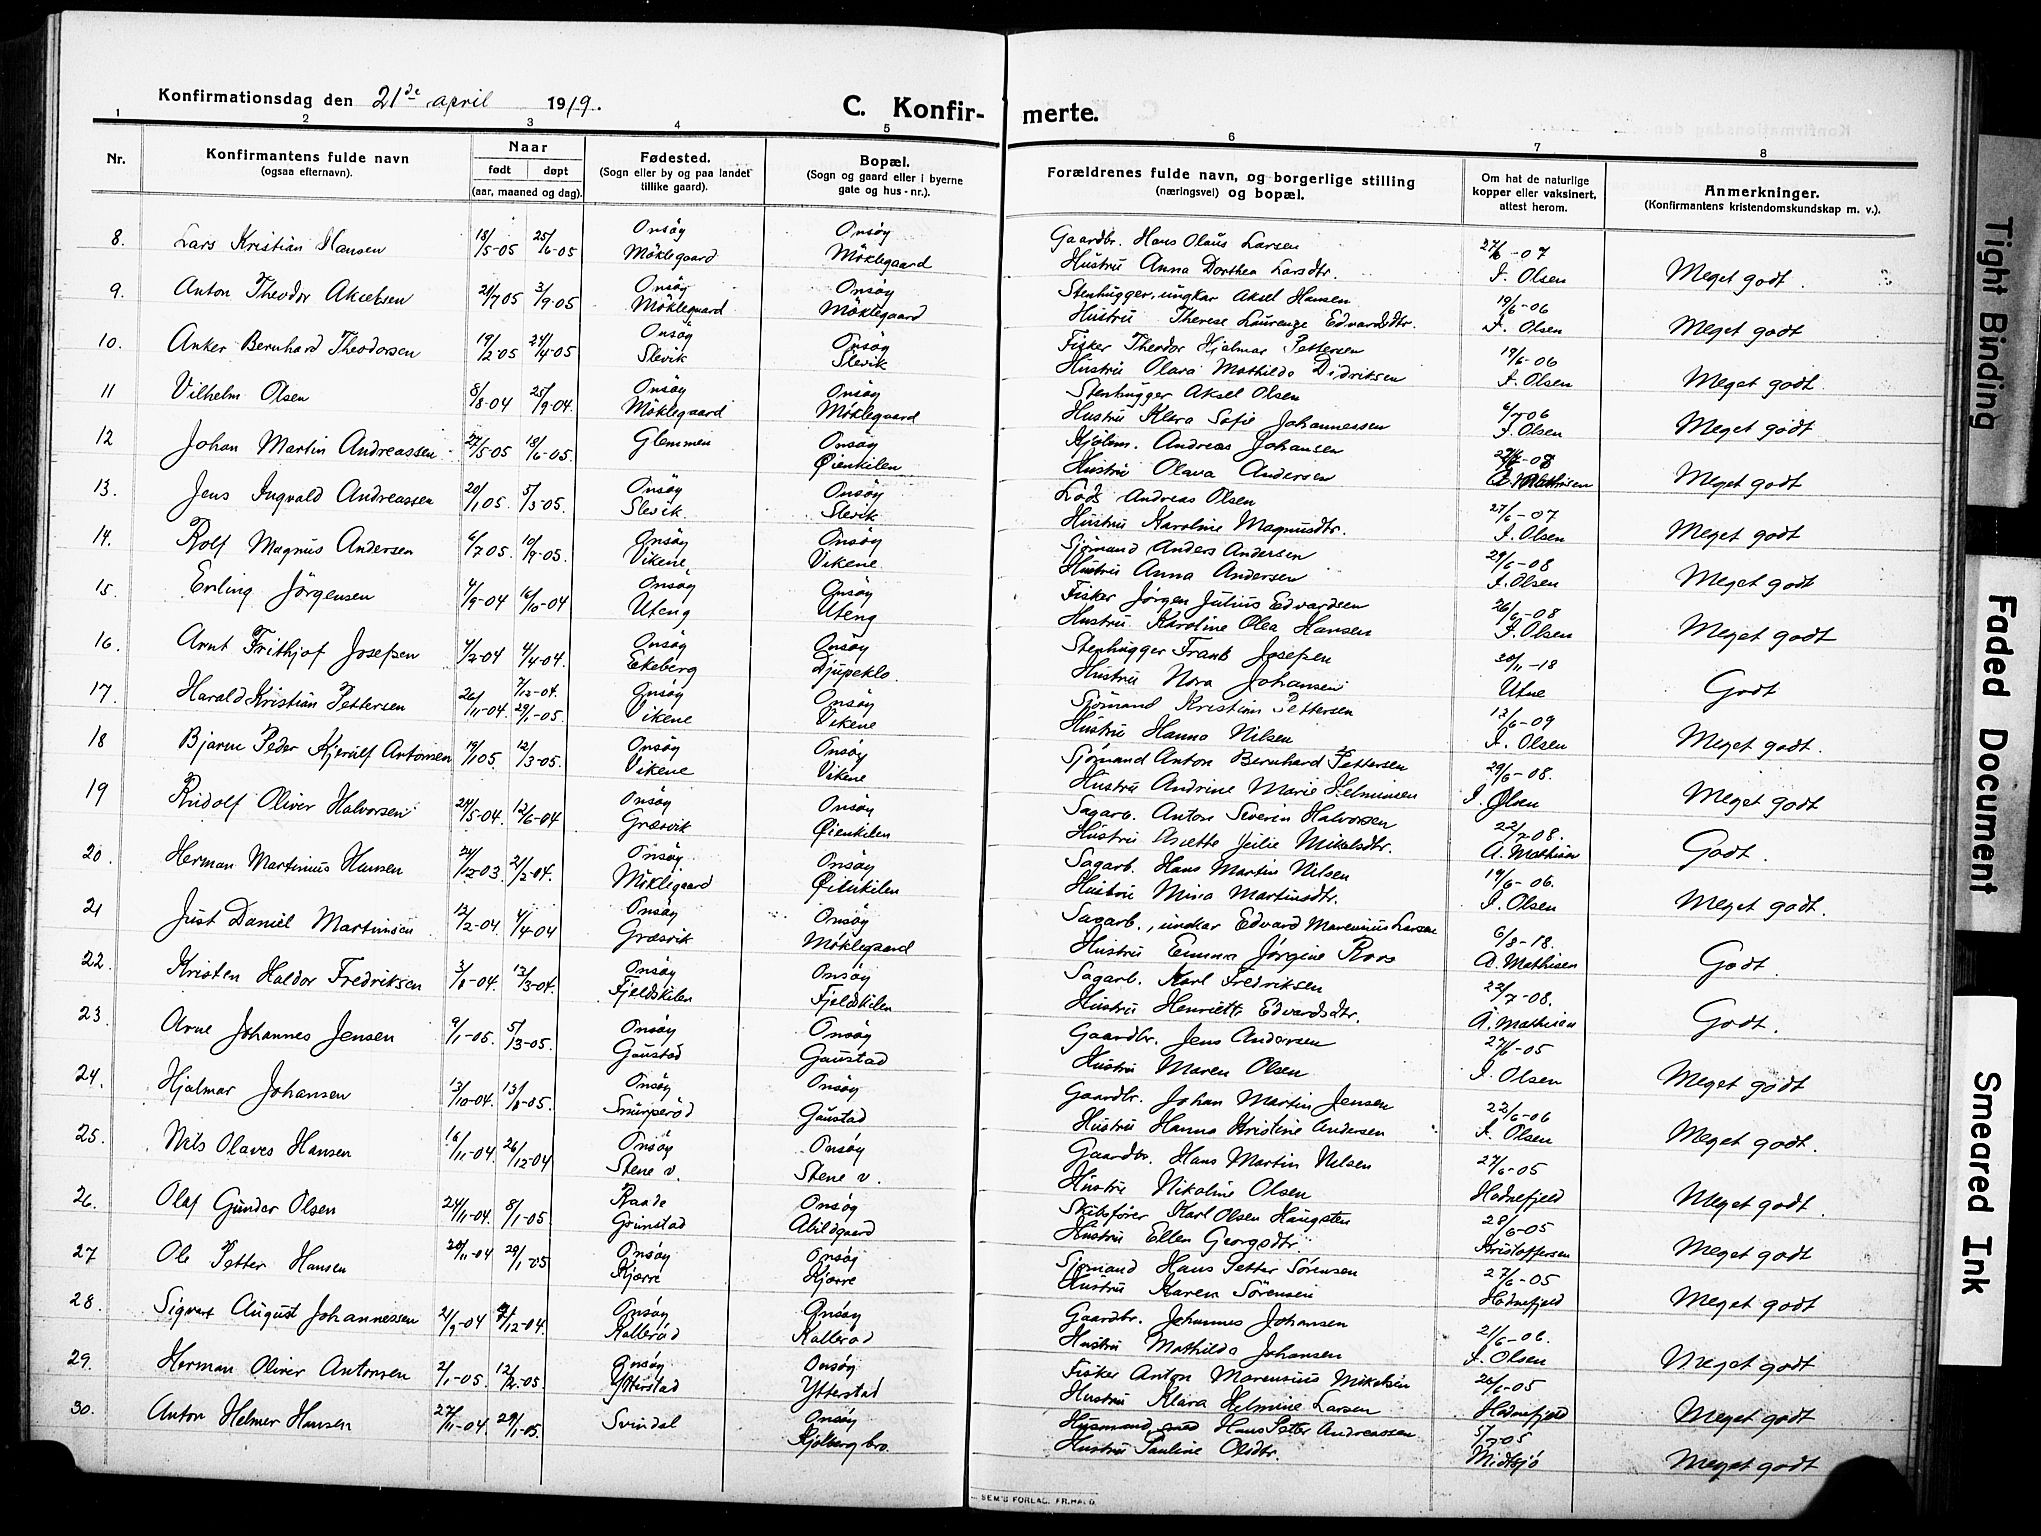 Konfirmationsdag den 21de april 1919.
C. Konfir- merte.
1 2 3 4 5 6 7 8
Nr.
Konfirmantens fulde navn
(ogsaa efternavn).
Naar
født døpt
(aar, maaned og dag).
Fødested.
(Sogn eller by og paa landet
tillike gaard).
Bopæl.
(Sogn og gaard eller i byerne
gate og hus-nr.).
Forældrenes fulde navn, og borgerlige stilling
(næringsvei) og bopæl.
Om hat de naturlige
kopper eller vaksinert,
attest herom.
Anmerkninger.
(Konfirmantens kristendomskundskap m. v.).
8. Lars Kristian Hansen 18/5-05 25/6-05 Onsøy Møklegaard Onsøy Møklegaard
Gaardbr. Hans Olaus Larsen
Hustru Anna Dorthea Larsdtr. 27/6-07 I. Olsen Meget godt.
9. Anton Theodor Akselsen 21/7 05 3/9-05 Onsøy Møklegaard Onsøy Møklegaard
Stenhugger, ungkar Aksel Hansen
Hustru Therese Laurenze Edvardsdtr. 19/6-06 I. Olsen Meget godt
10. Anker Bernhard Theodorsen 19/2 05 24/4-05 Onsøy Slevik Onsøy Slevik
Fisker Theodor Hjalmar Pettersen
Hustru Olava Mathilde Didriksen 19/6-06 I. Olsen Meget godt
11 Vilhelm Olsen 8/8-04 25/9-04. Onsøy Møklegaard Onsøy Møklegaard
Stenhugger Aksel Olsen
Hustru Klara Sofie Johannessen 6/7 06 I. Olsen Meget godt
12 Johan Martin Andreassen 27/5-05 18/6-05. Glemmen Onsøy Øienkilen
Kjølm. Andreas Johansen
Hustru Olava Andersen A. Mathisen Meget godt
13. Jens Ingvald Andreassen 20/1 05. 5/3-05. Onsøy Slevik. Onsøy Slevik
Lods Andreas Olsen
Hustru Karoline Magnusdtr. 27/6-07 I. Olsen Meget godt
14. Rolf Magnus Andersen 6/7 05. 10/9-05. Onsøy Vikene, Onsøy Vikene
Sjømand Anders Andersen
Hustru Anna Andersen 29/6-08 I. Olsen Meget godt
15. Erling Jörgensen 4/9-04 16/10-04 Onsøy Uteng Onsøy Uteng
Fisker Jørgen Julius Edvardsen
Hustru Karoline Olea Hansen 26/6-08 I. Olsen Meget godt
16. Arnt Frithjof Josefsen 4/2-04 4/4-04. Onsøy Ekeberg Onsøy Djupeklo.
Stenhugger Frants Josefsen
Hustru Nora Johansen 30/11-18 Utne Godt
17. Harald Kristian Pettersen 26/11-04. 7/12-04. 29/1-05. Onsøy Vikene Onsøy Vikene
Sjømand Kristian Pettersen
Hustru Hanna Nilsen 12/6-09 I. Olsen Meget godt.
18 Bjarne Peder Kjerulf Antonsen 19/1 05. 12/3-05. Onsøy Vikene Onsøy Vikene
Sjømand Anton Bernhard Pettersen
Hustru Andrine Marie Helminsen 29/6-08. I. Olsen Meget godt
19 Rudolf Oliver Halvorsen 24/5-04. 12/6-04 Onsøy Græsvik Onsøy Øienkilen
Sagarb. Anton Severin Halvorsen
Hustru Julie Mikalsdtr. 22/7-08. A. Mathisen Godt.
20. Herman Martinius Hansen 24/12-03 21/2-04. Onsøy. Møklegaard Onsøy Øienkilen
Sagarb. Hans Martin Nilsen
Hustru Mina Martinsdtr. 19/6-06. I. Olsen Meget godt.
21 Just Daniel Martinsen 12/2-04. 4/4-04 Onsøy Græsvik Onsøy Møklegaard
Sagarb., unkar Edvard Marenius Larsen
Hustru Emma Jørgine Roos 6/8-18. A. Mathisen Godt.
22. Kristen Haldor Fredriksen 3/1-04. 13/3-04. Onsøy Fjeldskilen Onsøy Fjeldskilen
Sagarb. Karl Fredriksen
Hustru Henriette Edvardsdtr. 22/7-08. A. Mathisen Godt.
23. Arne Johannes Jensen 9/1-05. 5/3-05. Onsøy Gaustad Onsøy Gaustad
Gaardbr. Jens Andersen
Hustru Maren Olsen 27/6-05 I. Olsen Meget godt
24. Hjalmar Johansen 13/10-04. Onsøy Smurperød Onsøy Gaustad
Gaardbr. Johan Martin Jensen
Hustru Hanna Kristine Andersen 22/6-06 I. Olsen Meget godt.
25. Nils Olaves Hansen 16/11-04. 26/12-04 Onsøy Stene v. Onsøy Stene v.
Gaardbr. Hans Martin Nilsen
Hustru Nikoline Olsen 27/6-05 Hodnefjeld Meget godt.
26. Olaf Gunder Olsen 24/11-04. 8/1-05 Raade Grimstad Onsøy Abildgaard
Skibsfører Karl Olsen Haugsten
Hustru Ellen Georgsdtr. 28/6-05 Kristoffersen Meget godt
27 Ole Petter Hansen 20/11-04 29/1-05 Onsøy Kjærre Onsøy Kjærre
Sjømand Hans Petter Sørensen
Hustru Karen Sørensen 27/6-05 Hodnefjeld Meget godt
28. Sigvart August Johannessen 21/9-04 /12-04. Onsøy Kallerød Onsøy Kallerød
Gaardbr. Johannes Johansen
Hustru Mathilda Johansen 21/6-06. I. Olsen Meget godt
29. Herman Oliver Antonsen 2/1-05. 12/2-05. Onsøy Ytterstad Onsøy Ytterstad
Fisker Anton Marensius Mikalsen
Hustru Klara Helmine Larsen 26/6-05 Hodnefjeld Meget godt
30. Anton Helmer Hansen 27/11-04 29/1-05. Svindal Onsøy Kjølberg bro.
Husmand Hans Petter Andreassen
Hustru Pauline Olsdtr. 5/7-05 Midtsjø Meget godt
SEM'S FORLAG, FR.HALD.
Tight Binding
Faded Document
Smeared Ink